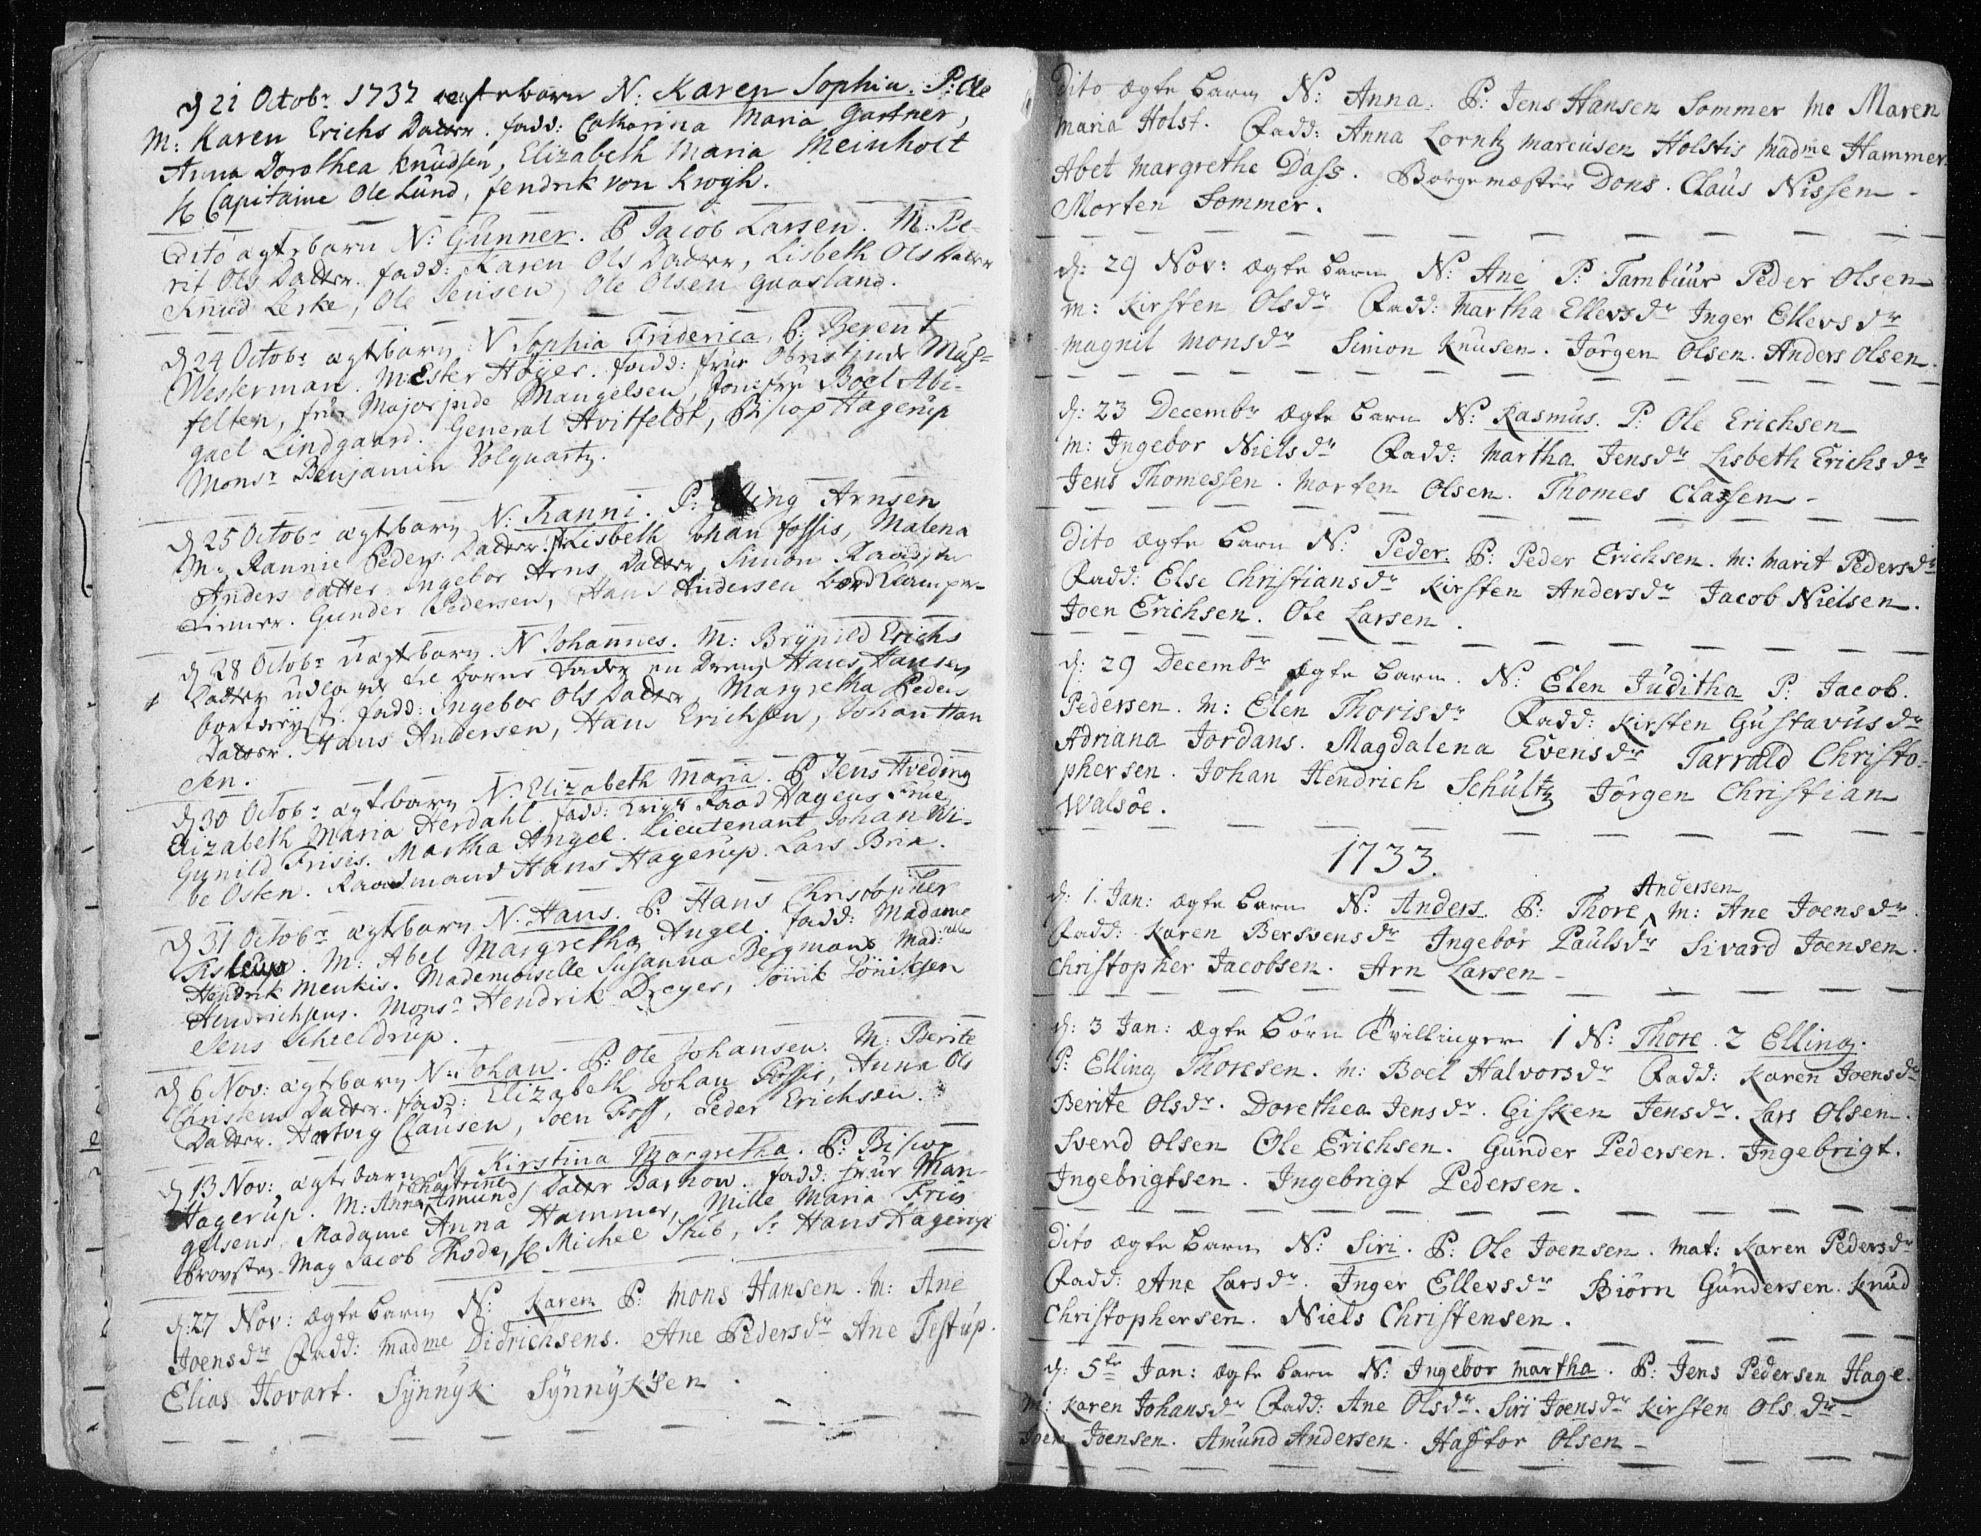 d 21 Octobr 1732 ægtebarn N: Karen Sophia. P: Ole
M: Karen Erichs Datter. fadd: Catharina Maria Gartner,
Anna Dorothea Knudsen, Elizabeth Maria Meinholt
Hr Capitaine Ole Lund, fendrik von Krogh.
Dito ægtebarn N: Gunner. P Jacob Larsen. M: Be-
rit Ols Datter. fadd: Karen Ols Datter, Lisbeth Ols Datter
Knud Lerke, Ole Jensen, Ole Olsen Gaasland.
d 24 Octobr ægtebarn: N Sophia Friderica, P: Berent
Westerman. M: Ester Høyer. fadd: frue Obristinde Mus-
felten, frue Majorinde Mangelsen, Jomfru Boel Abi-
gael Lindgaard. General Hvitfeldt, Biscop Hagerup
Monsr Benjamin Volquartz.
d 25 Octobr ægtebarn N: Ranni. P: Elling Arnsen
M: Rannie Peders Datter. f: Lisbeth Johan fossis, Malena
Anders datter Ingebor Arns Datter, Simon
Gunder Pedersen, Hans Andersen
d 28 Octobr uægtebarn. N Johannes. M: Brynild Erichs
Datter udlagde til barne Fader en Dreng Hans Hansen
bortreyst. fadd: Ingebor Ols Datter, Margretha Peders
Datter. Hans Andersen, Hans Erichsen, Johan Han
sen.
d 30 Octobr ægtebarn N: Elizabeth Maria. P Jens Hveding
Elizabeth Maria Herdahl. fadd: Krigs Raad Hagens Frue,
Gunild Frisis. Martha Angel. Lieutenant Johan Wi-
be Osten. Raadmand Hans Hagerup. Lars Brix.
d 31 Octobr ægtebarn N: Hans. P: Hans Christopher
M: Abel Margretha Angel. fadd: Madame
Hendrik Menkis. Mademoiselle Susanna Bergmans Mad:elle
Hendrichsens. Monsr Hendrik Dreyer, Sønik Søniksen
Jens Schieldrup.
d 6 Nov: ægtebarn N: Johan. P: Ole Johansen. M: Berite
Christens Datter. fadd: Elizabeth Johan Fossis, Anna Ols
Datter. Hartvig Clausen, Joen Foss, Peder Erichsen.
d 13 Nov: ægtebarn N Kirstina Margretha. P: Biscop
Hagerup. M: Anna Chatrine Amunds Datter Barhow. fadd: frue Man
gelsens, Madame Anna Hammer, Mille Maria Friis
Provsten Mag Jacob Thode, Hr Michel Skib, Sr Hans Hagerup
d: 27 Nov: Ægte barn N: Karen P: Mons Hansen. M: Ane
Joensdr Fadd: Madme Didrichsens. Ane Pedersdr Ane Testup.
Elias Hovart. Synnyk Synnyksen.
Dito Ægte barn N: Anna. P: Jens Hansen Sommer Mo Maren
Maria Holst. Fadd: Anna Lorntz Marcusen Holstis Madme Hammer
Abet Margrethe Dass. Borgemæster Dons. Claus Nissen
Morten Sommer.
d: 29 Nov: Ægte barn N: Ane P: Tambuur Peder Olsen
M: Kirsten Olsdr Fadd: Martha Ellevsdr Inger Ellevsdr
Magnil Monsdr Simon Knusen. Jørgen Olsen. Anders Olsen.
d: 23 Decembr Ægte barn N: Rasmus. P: Ole Erichsen
M: Ingebor Nielsdr Fadd: Martha Jensdr Lisbeth Erichsdr
Jens Thomessen. Morten Olsen. Thomes Classen
Dito Ægte barn N: Peder. P: Peder Erichsen. M: Marit Pedersdr
Fadd: Else Christiansdr Kirsten Andersdr Jacob Nielsen.
Joen Erichsen. Ole Larsen.
d: 29 Decembr Ægte barn. N: Elen Juditha P: Jacob
Pedersen. M: Elen Thorisdr Fadd: Kirsten Gustavusdr
Adriana Jordans. Magdalena Evensdr Tarrald Christo-
phersen. Johan Hendrich Schultz Jørgen Christian
Walsöe.
1733.
d: 1. Jan: Ægte barn N: Anders P: Thore Andersen M: Ane Joensdr
Fadd: Karen Berssensdr Ingebor Paulsdr Sivard Joensen.
Christopher Jacobsen. Arn Larsen
d: 3 Jan: Ægte børn Tvillinger 1 N: Thore. 2 Elling.
P: Elling Thoresen. M: Boel Halvorsdr Fadd: Karen Joensdr
Berite Olsdr. Dorethea Jensdr. Gisken Jensdr. Lars Olsen.
Svend Olsen Ole Erichsen. Gunder Pedersen. Ingebrigt.
Ingebrigtsen. Ingebrigt Pedersen.
Dito Ægte barn N: Siri. P: Ole Joensen. Mat: Karen Pedersdr
Fadd: Ane Larsdr. Inger Ellevsdr Biörn Gundersen. Knud
Christophersen. Niels Christensen.
d: 5te Jan: Ægte barn N: Ingebor Martha. P: Jens Pedersen Hage.
M: Karen Johansdr Fadd: Ane Olsdr. Siri Joensdr Kirsten Olsdr
Joen Joensen. Amund Andersen. Haftor Olsen